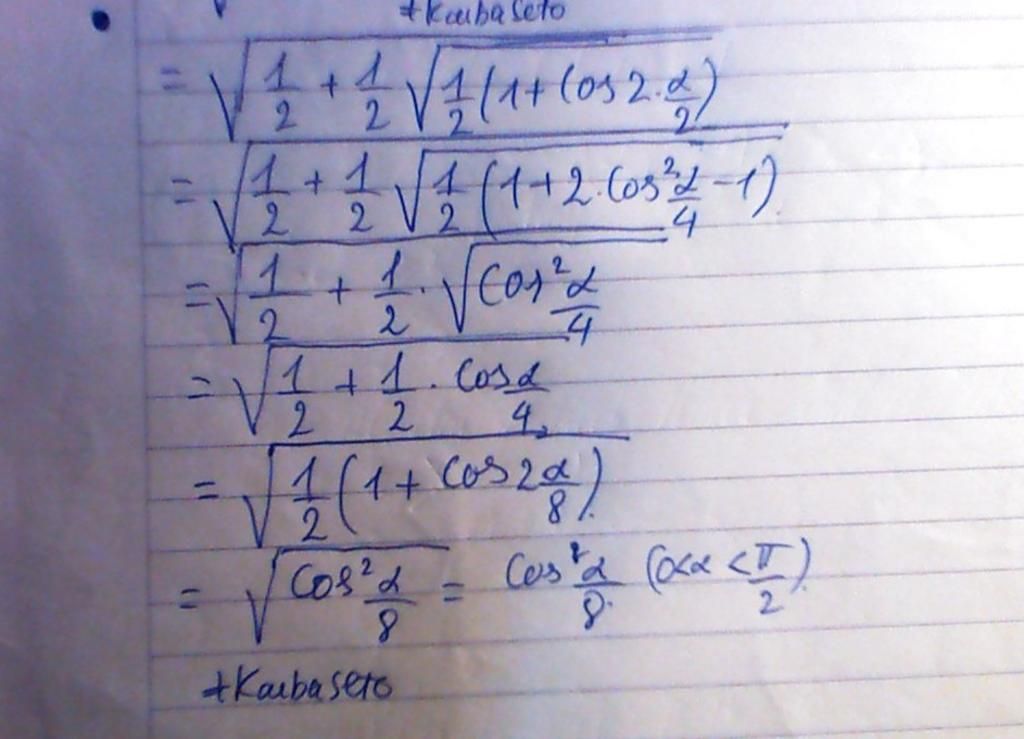 +Kaubaseto
= √(1/2 + 1/2 √(1/2 (1 + Cos 2·α/2)
= √(1/2 + 1/2 √(1/2 (1 + 2·Cos²α/4 - 1)
= √(1/2 + 1/2 · √(Cos²α/4
= √(1/2 + 1/2 · Cos α/4
= √(1/2 (1 + Cos 2α/8)
= √(Cos²α/8 = Cos α/8 (0<α<π/2)
+Kaubaseto